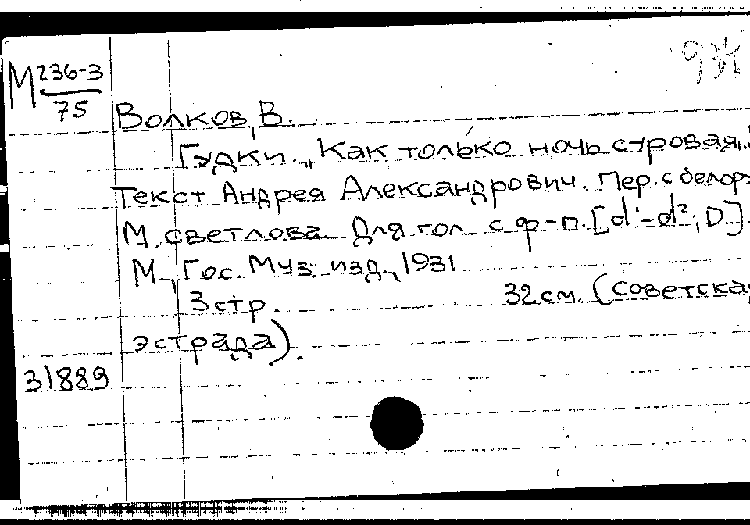 М 236-3
75
Волков, В.
Гудки. „Как только ночь суровая..."
Текст Андрея Александрович. Пер. с белор.
М. Светлова. Для гол. с ф-п. [d¹-d²; D].
М., Гос. Муз. изд., 1931
3 стр. 32 см. (Советская
эстрада).
31889